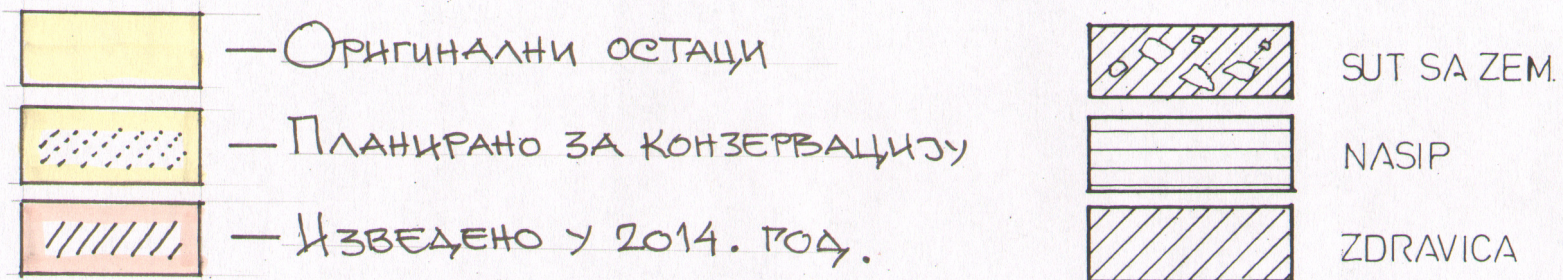 — Оригинални остаци
— Планирано за конзервацију
— Изведено у 2014. год.
SUT SA ZEM.
NASIP
ZDRAVICA